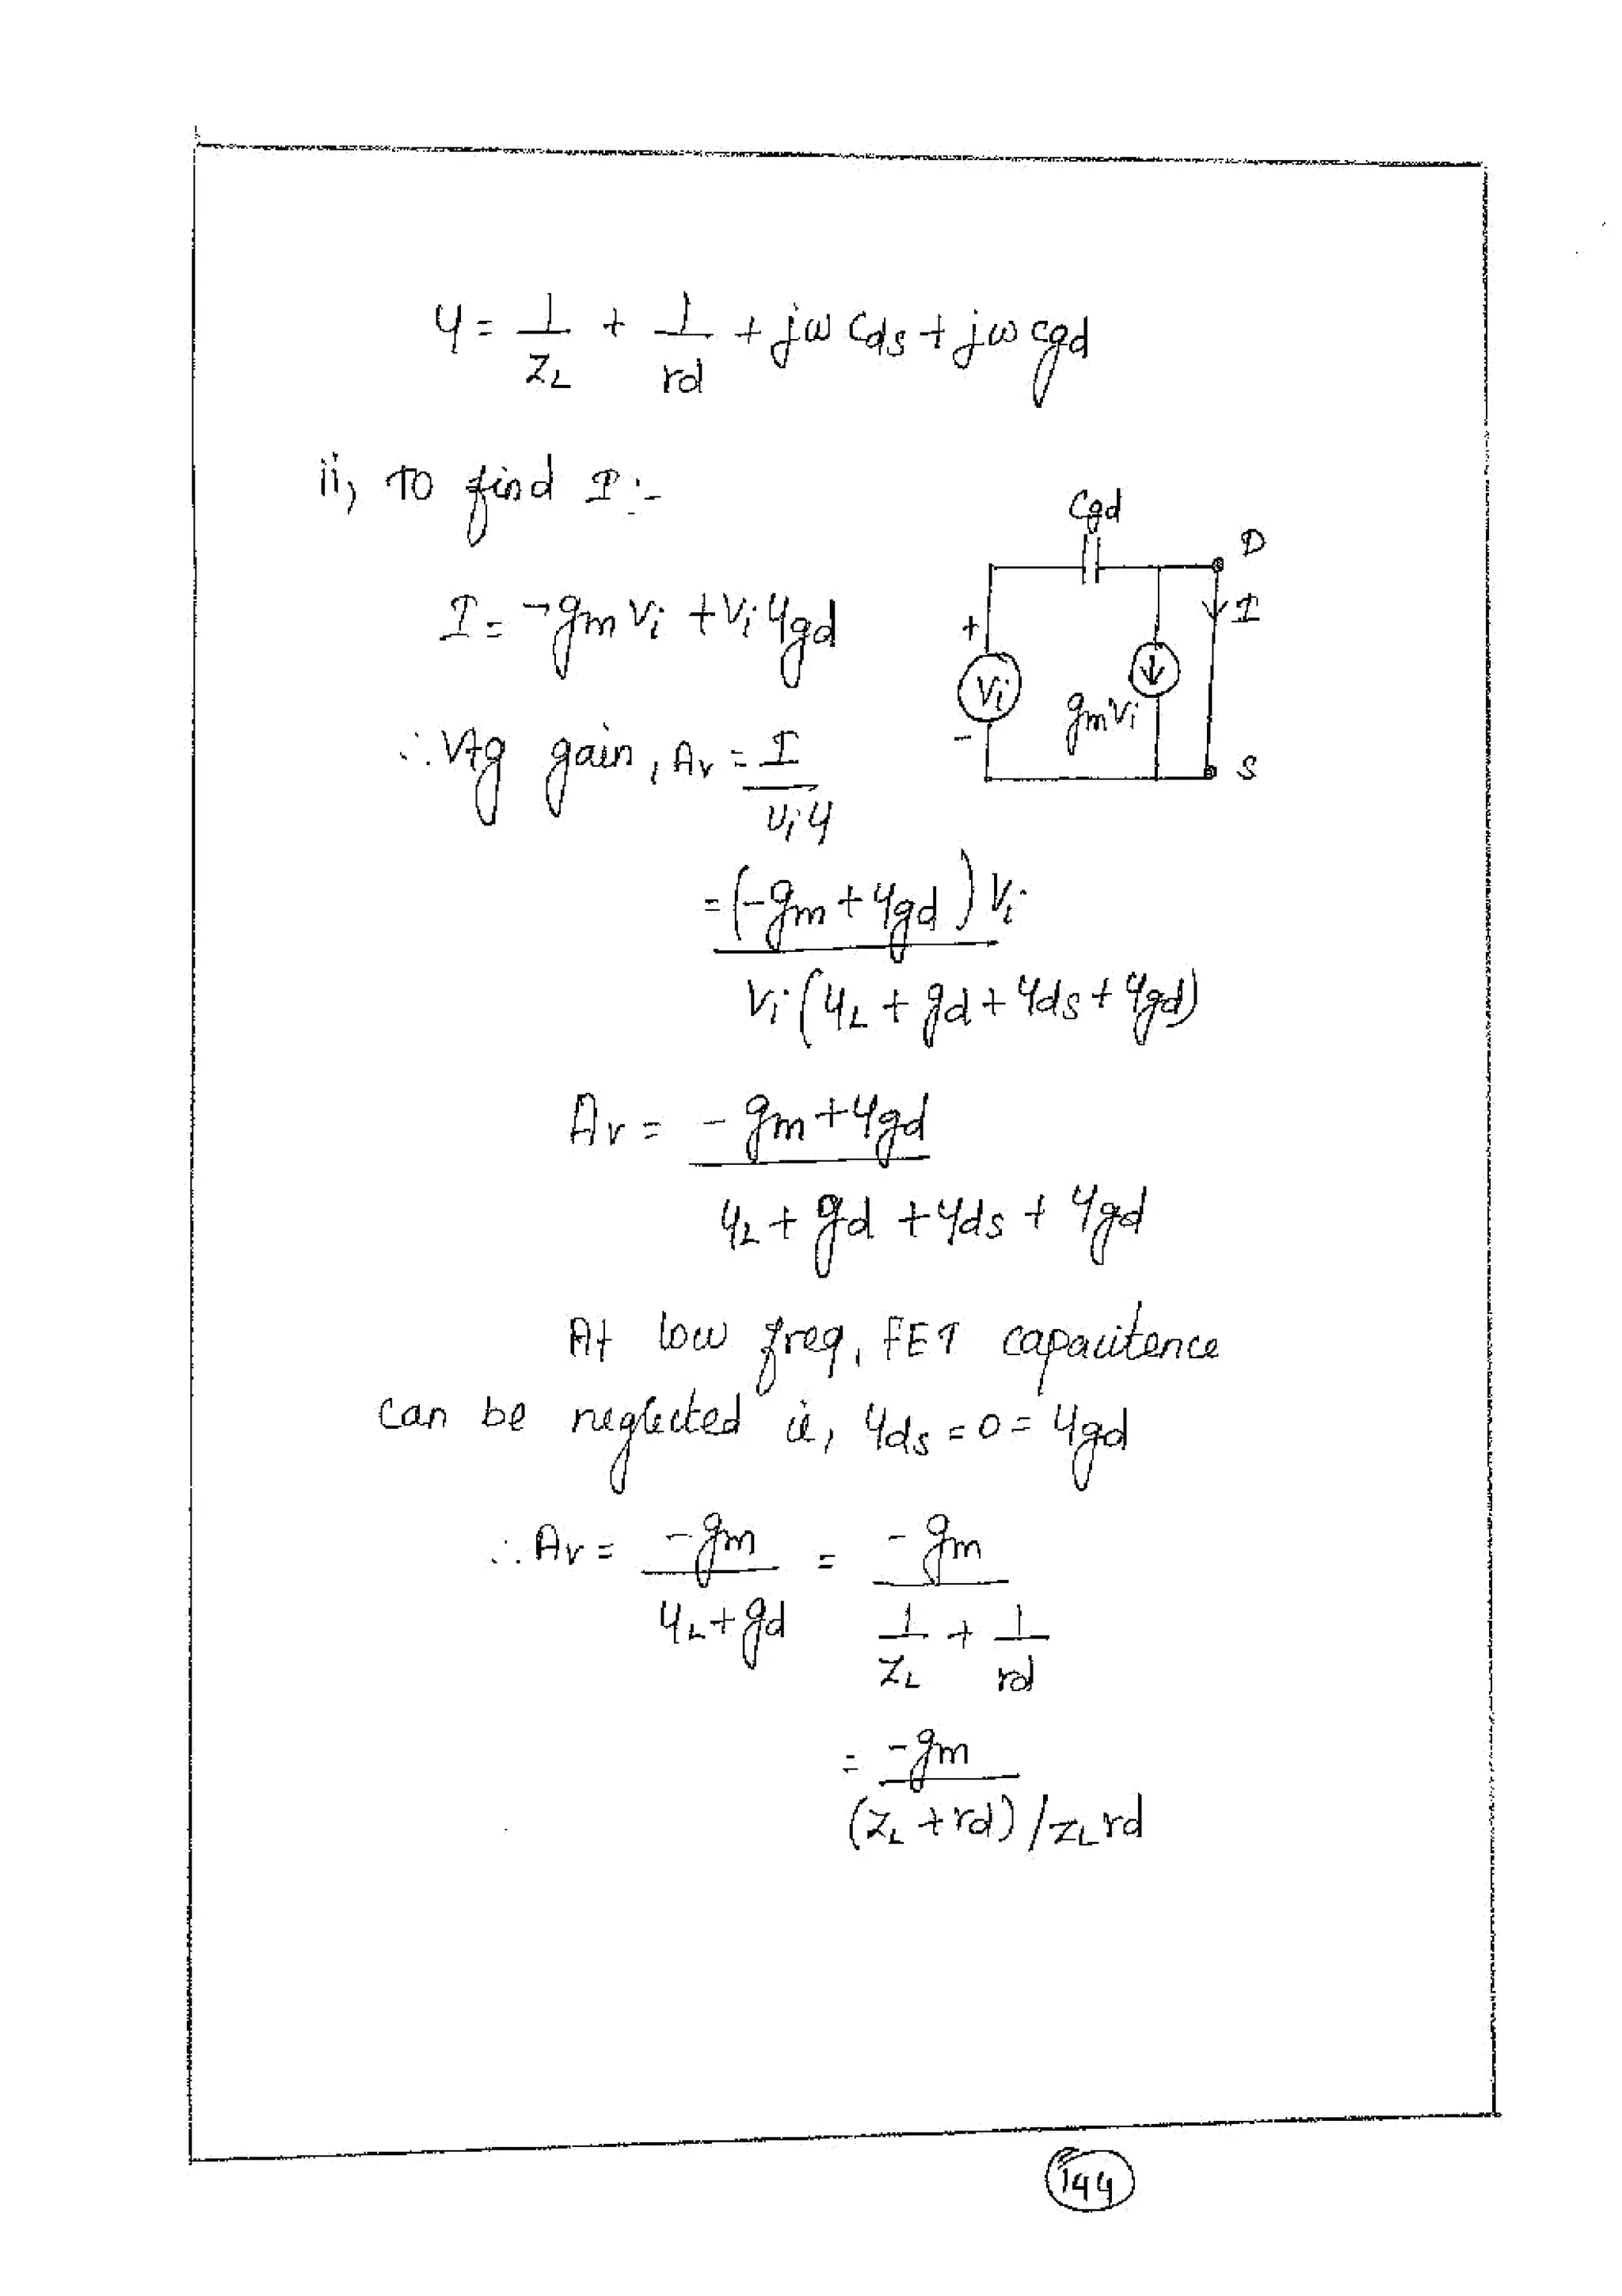 Y = 1/ZL + 1/rd + jω Cds + jω Cgd
ii, To find I :-
I = -gm Vi + Vi Ygd
Cgd
D
I
+
Vi
-
gmVi
S
∴ Vtg gain, Av = I / Vi Y
= (-gm + Ygd) Vi / Vi (YL + gd + Yds + Ygd)
Av = - gm + Ygd / YL + gd + Yds + Ygd
At low freq, FET capacitence
can be neglected ie, Yds = 0 = Ygd
∴ Av = -gm / YL + gd = -gm / 1/ZL + 1/rd
= -gm / (ZL + rd) / ZL rd
144